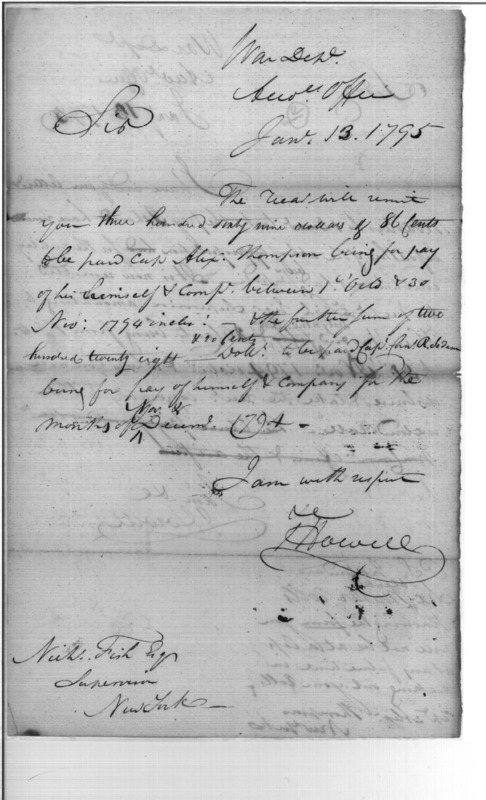 War Dept.
Accots Office
Jany. 13. 1795
Sir
The Treas. will remit
you three hundred sixty nine dollars & 86 Cents
to be paid Cap. Alexr. Thompson being for pay
of his himself & Compy. between 1st Octo. & 30
Nov: 1794 inclu: & the further sum of two
& 20 Cents
hundred twenty eight Dolls. to be paid Cap.
being for pay of himself & Company for the
Nov. &
months of Decemr. 1794 —
I am with respect
&c
J Howell
Nichs. Fish Esq
Supervisor
New York —